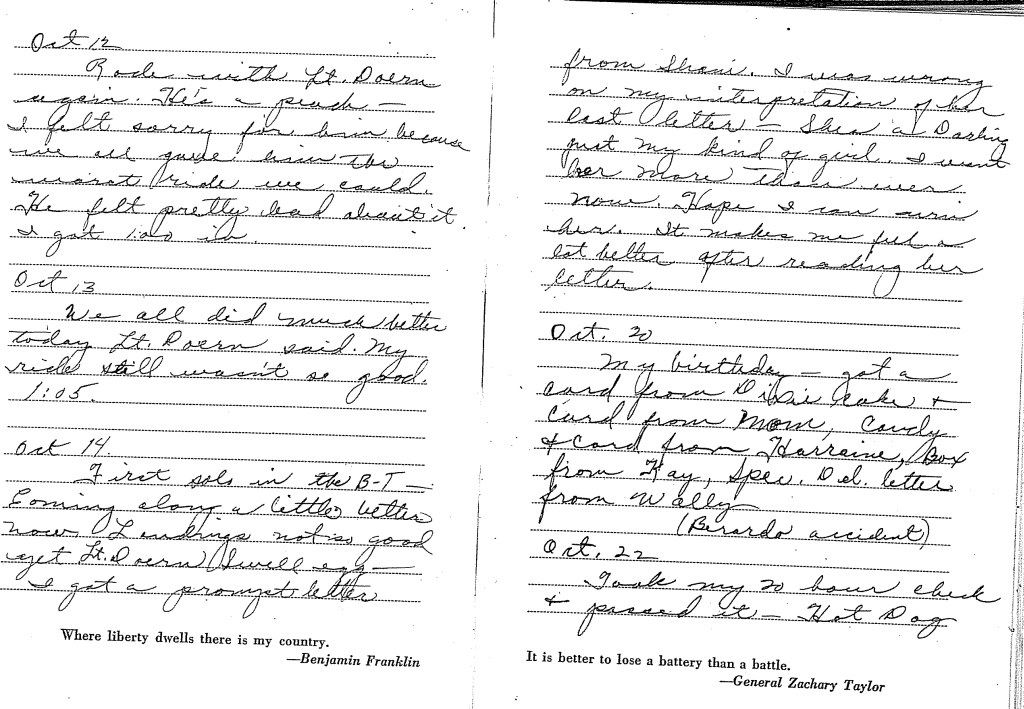 Oct 12
Rode with Lt. Doern
again. He's a peach —
I felt sorry for him because
we all gave him the
worst ride we could.
He felt pretty bad about it.
I got 1:00 in.
Oct 13
We all did much better
today Lt. Doern said. My
ride still wasn't so good.
1:05.
Oct 14
First solo in the B-T —
Coming along a little better
now Landings not so good
yet Lt. Doern Swell egg —
I got a prompt letter
Where liberty dwells there is my country.
—Benjamin Franklin
from Shani. I was wrong
on my interpretation of her
last letter — Shes a Darling
just my kind of girl. I want
her more than ever
now. Hope I can win
her. It makes me feel a
lot better after reading her
letter.
Oct. 20
My birthday — got a
card from Dixie cake +
Card from Mom, Candy
+ Card from Lorraine, Box
from Fay, Spec. Del. letter
from Wally
(Berardo accident)
Oct. 22
Took my 20 hour check
+ passed it — Hot Dog
It is better to lose a battery than a battle.
—General Zachary Taylor